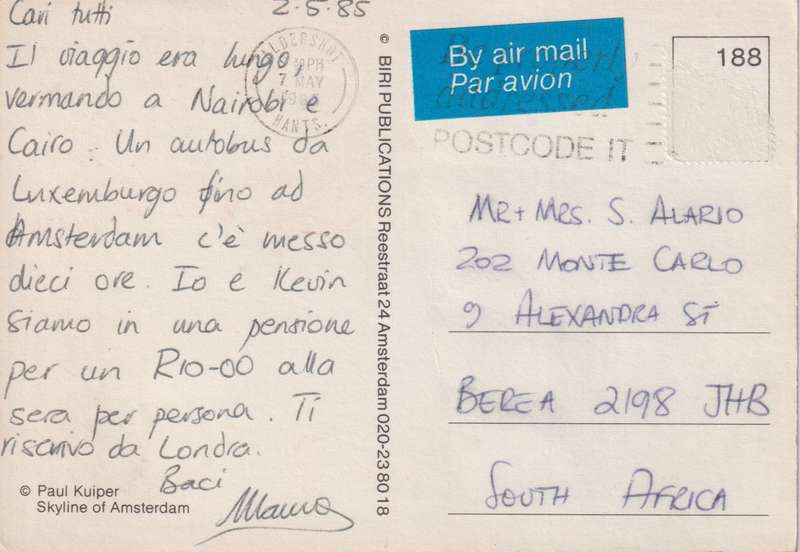 2.5.85
Cari tutti
Il viaggio era lungo,
vermando a Nairobi e
Cairo. Un autobus da
Luxemburgo fino ad
Amsterdam c'è messo
dieci ore. Io e Kevin
siamo in una pensione
per un R10-00 alla
sera per persona. Ti
riscrivo da Londra.
Baci
© Paul Kuiper
Skyline of Amsterdam
ALDERSHOT
PM
7 MAY
HANTS.
© BIRI PUBLICATIONS Reestraat 24 Amsterdam 020-23 80 18
By air mail
Par avion
addressed
POSTCODE IT
188
MR + MRS. S. ALARIO
202 MONTE CARLO
9 ALEXANDRA ST
BEREA 2198 JHB
SOUTH AFRICA